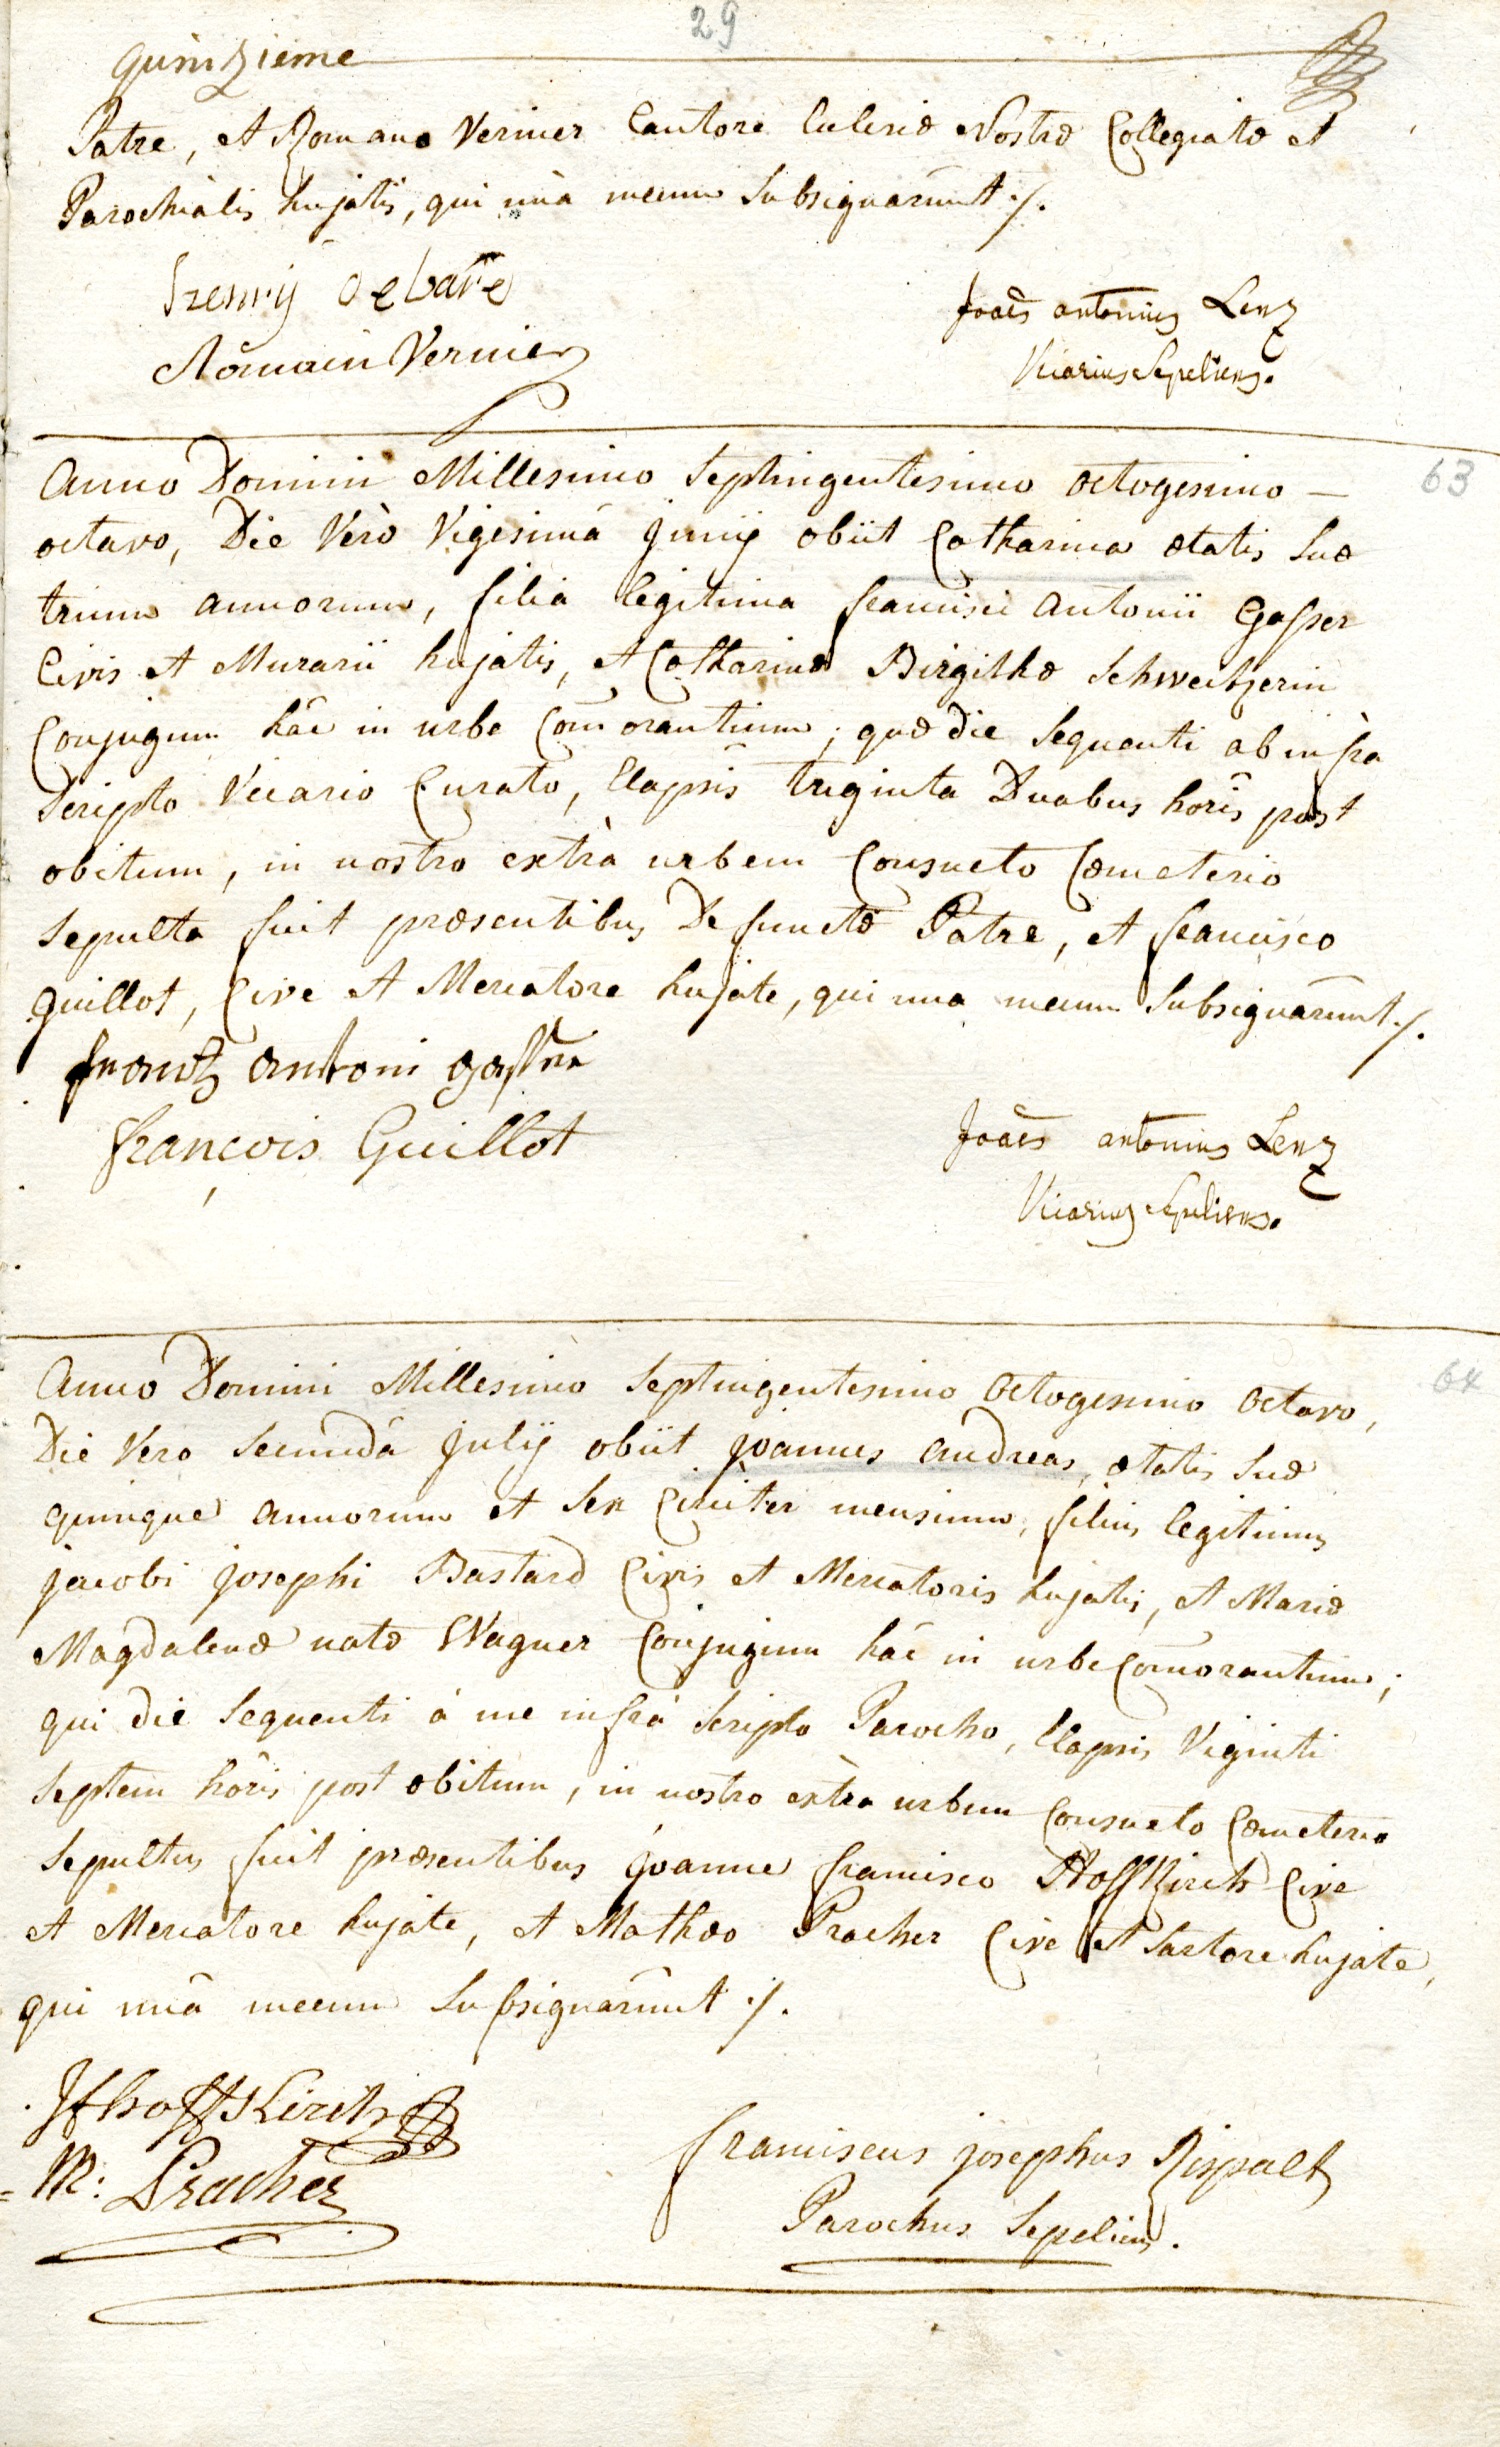 29
quinzieme
Patre, et Romano Vernier Cantore Ecclesiæ Nostræ Collegiatæ et
Parochialis hujatis, qui unà mecum Subsignarunt ./.
henrÿ debare
Romain Vernier
Joaês antonius Lenz
Vicarius Sepeliens.
63
Anno Domini Millesimo Septingentesimo octogesimo —
octavo, Die Verò Vigesimâ Junij obiit Catharina ætatis Suæ
trium annorum, filia legitima francisci Antonii Gasser
Civis et Murarii hujatis, et Catharinæ Birgithæ Schweitzerin
Conjugum hâc in urbe Com̄orantium; quæ die Sequenti ab infra
Scripto Vicario Curato, Elapsis triginta Duabus horis post
obitum, in nostro extrà urbem Consueto Cæmeterio
Sepulta fuit præsentibus Defunctæ Patre, et francisco
Guillot, Cive et Mercatore hujate, qui una mecum Subsignarunt ./.
frantz antoni gasser
françois Guillot
Joaês antonius Lenz
Vicarius Sepeliens.
64
Anno Domini Millesimo Septingentesimo Octogesimo Octavo,
Die Vero Secundâ Julij obiit Joannes Andreas, ætatis Suæ
quinque annorum et Sex Circiter mensium, filius legitimus
Jacobi Josephi Bastard Civis et Mercatoris hujatis, et Mariæ
Magdalenæ natæ Wagner Conjugum hâc in urbe Com̄orantium;
qui die Sequenti à me infrà Scripto Parocho, Elapsis Viginti
Septem horis post obitum, in nostro extra urbem Consueto Cæmeterio
Sepultus fuit præsentibus Joanne francisco Hoffkirch Cive
et Mercatore hujate, et Mathæo Pracher Cive et Sartore hujate,
qui unâ mecum Subsignarunt ./.
Jfhoffkirch
M: Pracher
franciscus josephus Rispalt
Parochus Sepeliens.